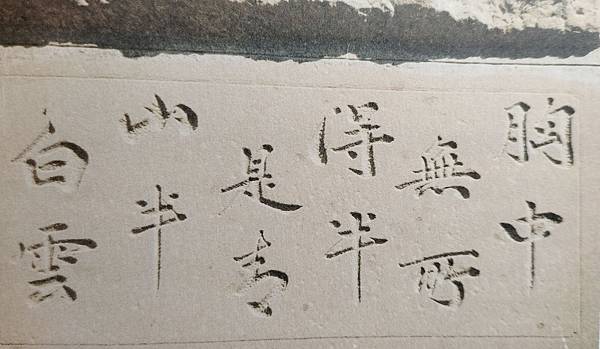 胸中
無所
得半
是青
山半
白雲